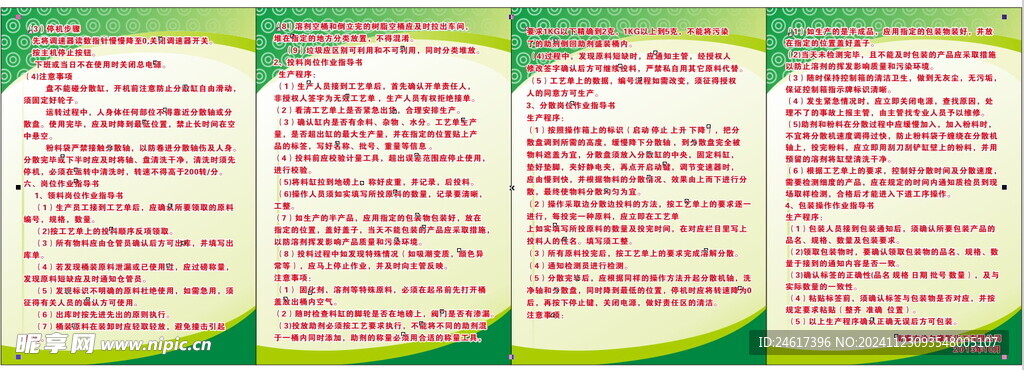 (3）停机步骤
先将调速器读数指针慢慢降至0,关闭调速器开关。
按主机停止按钮。
下班或当日不在使用时关闭总电源。
(4)注意事项
盘不能碰分散缸，开机前注意防止分散缸自由滑动，
须固定好轮子。
运转过程中，人身体任何部位不得靠近分散轴或分
散盘。使用完毕，应及时降到最低位置，禁止长时间在空
中悬空。
粉料袋严禁接触分散轴，以防卷进分散轴伤及人身。
分散完毕或下半时应及时将轴、盘清洗干净，清洗时须先
停机，必须在运转中清洗时，转速不得高于200转/分。
六、岗位作业指导书
1、领料岗位作业指导书
（1）生产员工接到工艺单后，应确认所要领取的原料
编号，规格，数量。
(2)按工艺单上的投料顺序反项领取。
（3）所有物料应由仓管员确认后方可出库，并填写出
库单。
（4）若发现桶装原料泄漏或已使用过，应过磅称量，
发现原料短缺应及时通知仓管员。
（5）发现标识不明确的原料杜绝使用，如需急用，须
征得有关人员的确认方可使用。
（6）出库时按先进先出的原则执行。
（7）桶装原料在装卸时应轻取轻放，避免撞击引起
（8）溶剂空桶和倒立完的树脂空桶应及时拉出车间，
堆在指定的地方分类放置，不得混淆。
（9）垃圾应区别可利用和不可利用，同时分类堆放。
2、投料岗位作业指导书
生产程序：
（1）生产人员接到工艺单后，首先确认开单责任人，
非授权人签字为无效工艺单，生产人员有权拒绝接单。
（2）看清工艺单上是否紧急出场，合理安排生产。
（3）确认缸内是否有余料、杂物、水分。工艺单生产
量，是否超出缸的最大生产量，并在指定的位置贴上产
品的标签，写好名称、批号、重量等信息。
（4）投料前应校验计量工具，超出误差范围应停止使用，
进行校验。
（5)将料缸拉到地磅上，称好皮重，并记录，后投料。
(6)操作人员须如实填写所投原料的数量，记录要清晰，
工整。
（7）如生产的半成品，应用指定的包装物包装好，放在
指定的位置，盖好盖子，当天不能包装的产品应采取措施，
以防溶剂挥发影响产品质量和污染环境。
（8）投料过程中如发现特殊情况（如吸潮变质，颜色异
常等），应马上停止作业，并及时向主管反映。
注意事项：
（1）固化剂，溶剂等特殊原料，必须在起吊前先打开桶
盖放出桶内空气。
（2）随时检查料缸的脚轮是否在地磅上，阀门是否有渗漏。
（3)投放助剂必须按工艺要求执行，不能将不同的助剂混
于一桶内同时添加，助剂的称量必须用合适的称量工具，
要求1KG以下精确到2克，1KG以上到5克，不能将污染
了的助剂倒回助剂盛装桶内。
（4)过程中，发现原料短缺时，应通知主管，经授权人
修改签字确认后方可继续投料，严禁私自用其它原料代替。
（5）工艺单上的数据，编号流程如需改变，须征得授权
人的同意方可生产。
3、分散岗位作业指导书
生产程序：
（1）按照操作箱上的标识（启动 停止 上升 下降），把分
散盘调到所需的高度，缓慢降下分散轴，到分散盘完全被
物料遮盖为宜，分散盘须放入分散缸的中央，固定料缸，
垫好垫脚，夹好静电夹，再点开启动键，调节变速器时，
应由慢到快，并根据物料的分散情况，效果由上而下进行分
散，最终使物料分散均匀为宜。
（2）操作采取边分散边投料的方法，按工艺单上的要求逐一
进行，每投完一种原料，应立即在工艺单
上如实填写所投原料的数量及投完时间，在对应栏目里写上
投料人的签名。填写须工整。
（3）所有原料投完后，按工艺单上的要求完成溶解分散。
（4）通知检测员进行检测。
（5）分散完毕后，应根据同样的操作方法升起分散机轴，洗
净轴和分散盘，同时降到最低的位置，停机时应将转速降为0
后，再按下停止键，关闭电源，做好责任区的清洁。
注意事项：
（1）如生产的是半成品，应用指定的包装物装好，并放
在指定的位置盖好盖子。
(2)当天未检测完毕，且不能及时包装的产品应采取措施
以防止溶剂的挥发影响质量和污染环境。
（3）随时保持控制箱的清洁卫生，做到无灰尘，无污垢，
保证控制箱指示牌标识清晰。
（4）发生紧急情况时，应立即关闭电源，查找原因，处
理不了的事故上报主管，由主管找专业人员予以维修。
（5)助剂和粉料在分散过程中应缓慢加入，加入粉料时，
不宜将分散机速度调得过快，防止粉料袋子缠绕在分散机
轴上，投完粉料，应立即用刮刀刮铲缸壁上的粉料，并用
预留的溶剂将缸壁清洗干净。
（6）根据工艺单上的要求，控制好分散时间及分散速度，
需要检测细度的产品，应在规定的时间内通知质检员到现
场取样检测，合格后才能进入下道工序操作。
4、包装操作作业指导书
生产程序：
（1）包装人员接到包装通知后，须确认所要包装产品的
品名、规格、数量及包装要求。
（2)领取包装物时，要确认领取包装物的品名、规格、数
量于接到的通知内容是否一致。
（3）确认标签的正确性(品名 规格 日期 批号 数量），及与
实际数量的一致性。
（4）粘贴标签前，须确认标签与包装物是否对应，并按
规定要求粘贴（整齐 准确 位置）。
（5）以上生产程序确认正确无误后方可包装。
昵享网 www.nipic.cn
ID:24617396 NO:20241123093548005107